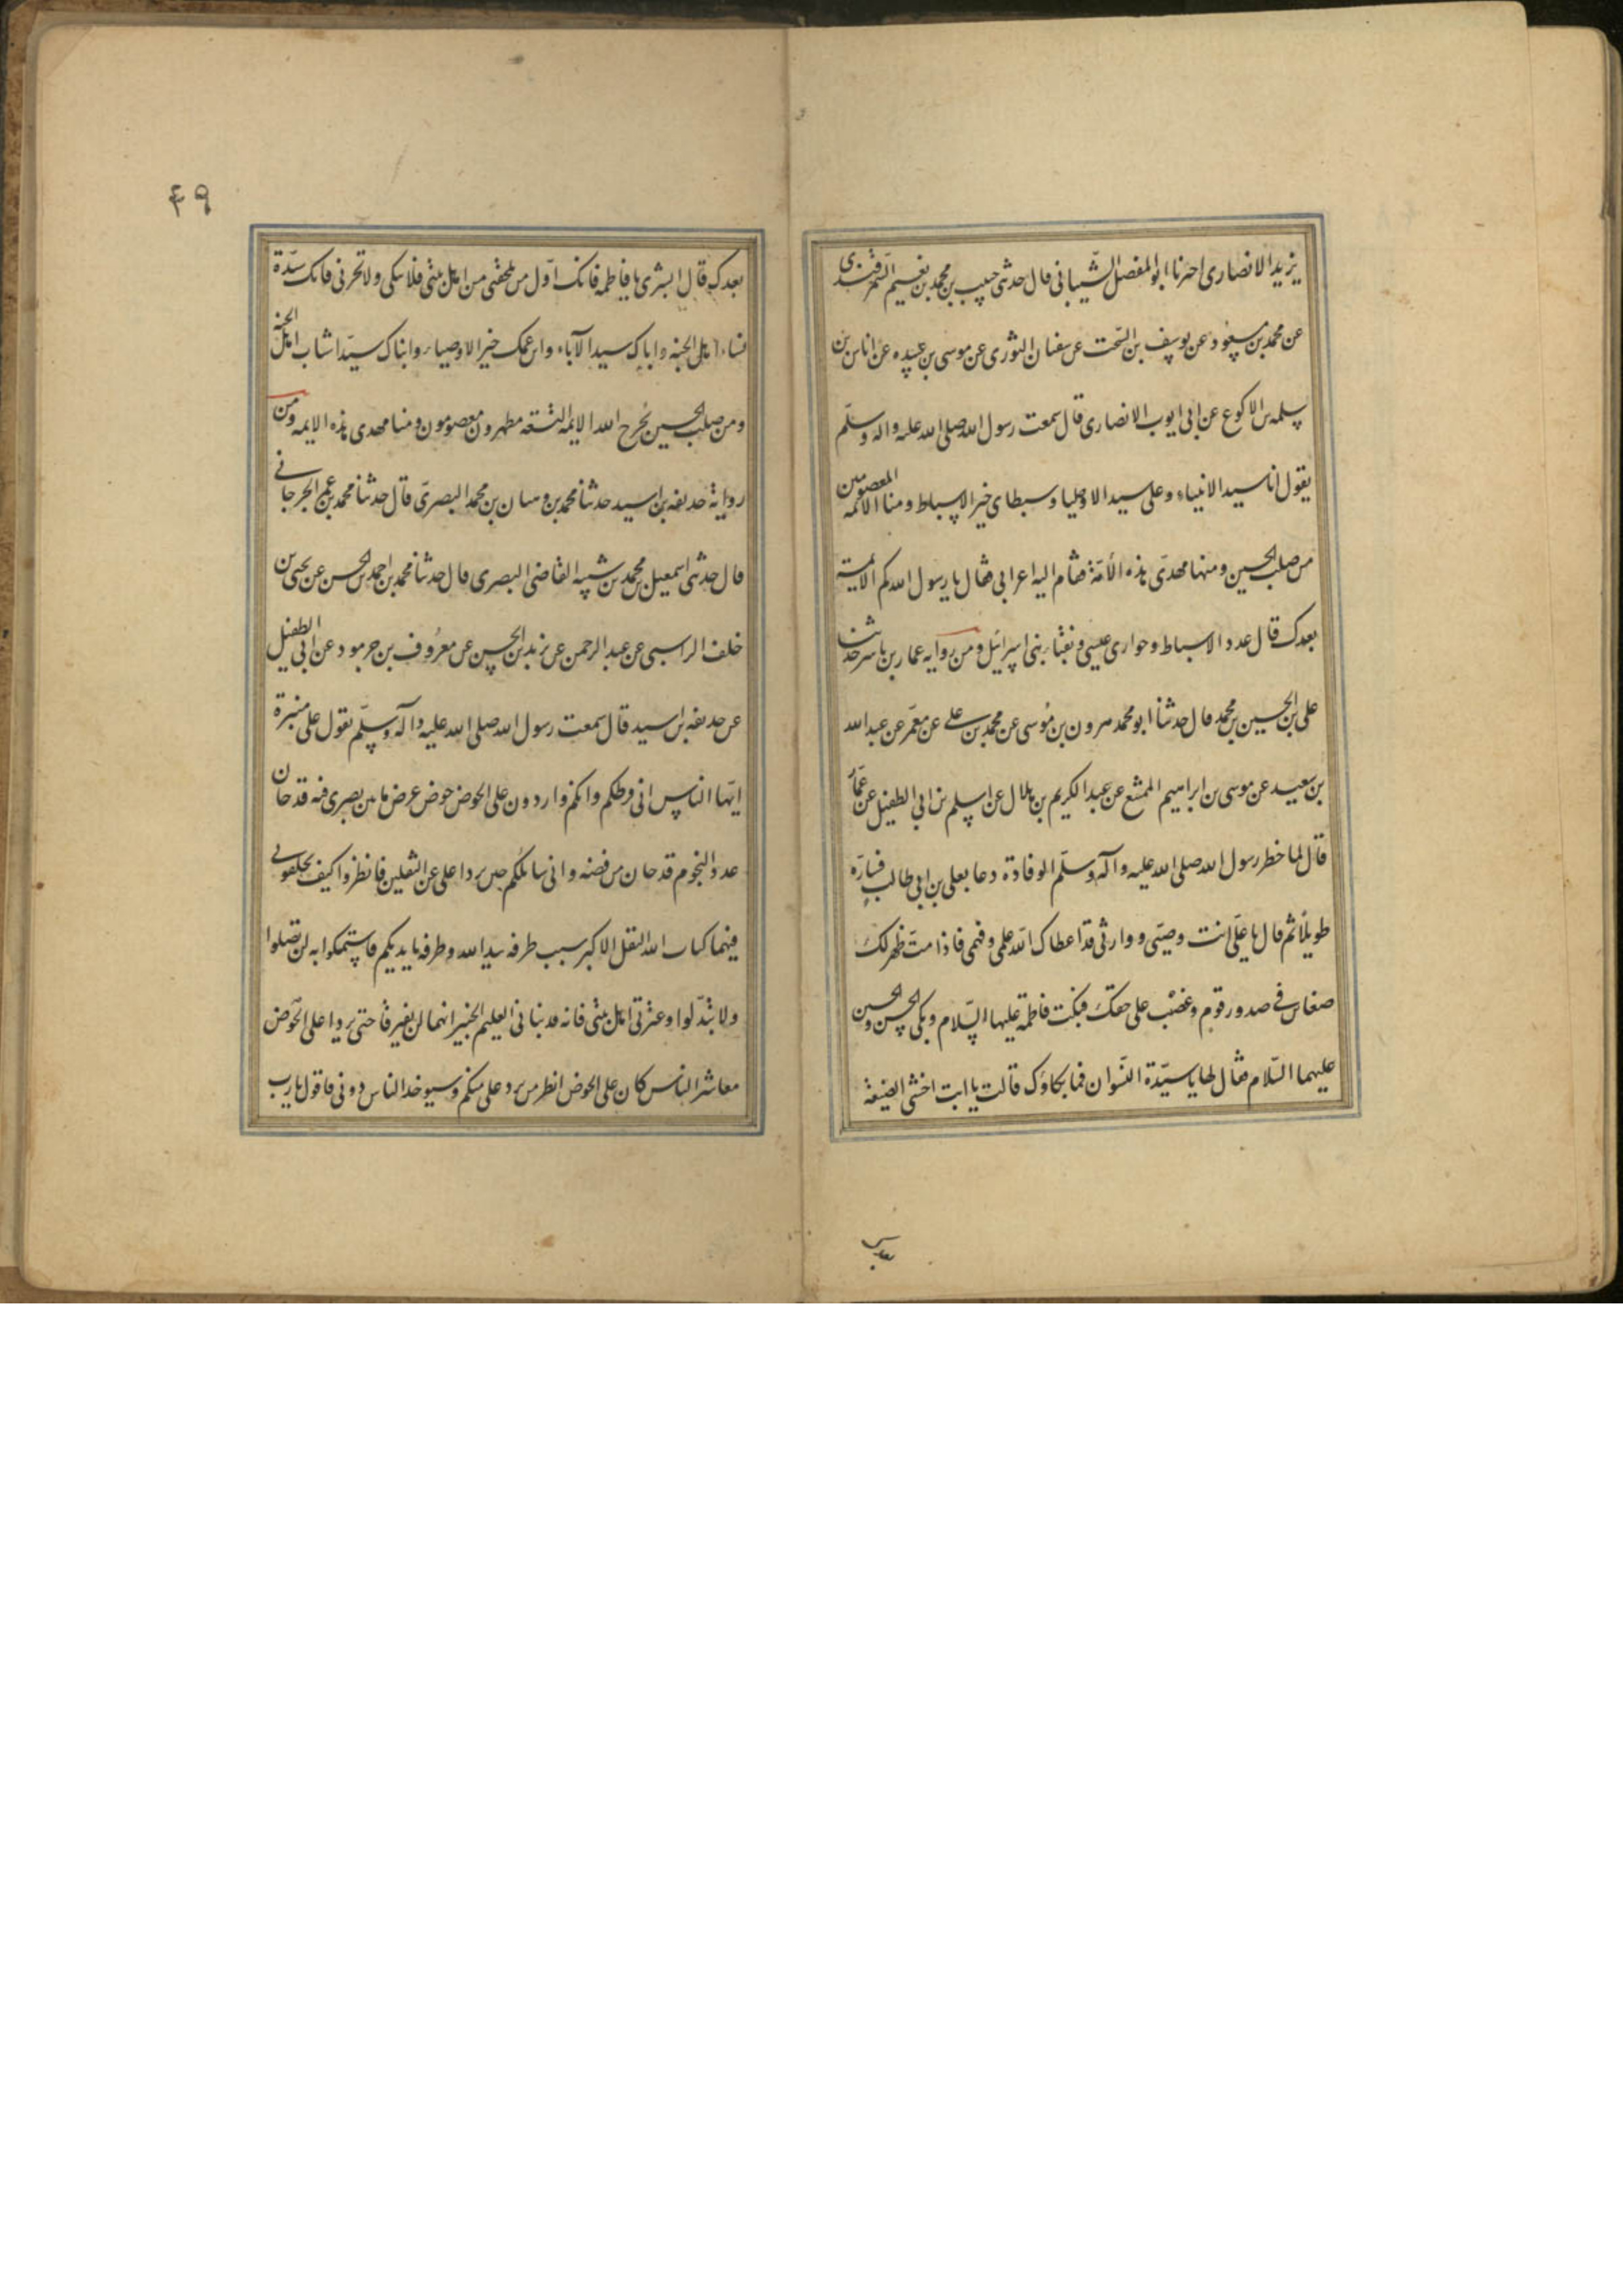 يزيد الانصارى اخبرنا ابو المفضل الشّيبانى قال حدثنى حبيب بن محمد بن نعيم السّمرقندى
عن محمد بن مسعود عن يوسف بن السّخت عن سفيان الثورى عن موسى بن عبيده عن اناس بن
سلمه بن الاكوع عن ابى ايوب الانصارى قال سمعت رسول الله صلى الله عليه واله وسلّم
يقول انا سيد الانبياء وعلى سيد الاوصيا وسبطاى خير الاسباط ومنا الائمه المعصومين
من صلب الحسين ومنها مهدىّ هذه الأمّة فقام اليه اعرابى فقال يا رسول الله كم الايمة
بعدك قال عدد الاسباط وحوارى عيسى ونقباء بنى اسرائيل ومن روايه عمار بن ياسر حدثنا
على بن الحسين بن محمد قال حدثنا ابو محمد هرون بن موسى عن محمد بن على عن معمّر عن عبد الله
بن سعيد عن موسى بن ابراهيم الممتع عن عبد الكريم بن هلال عن اسلم بن ابى الطفيل عن عمّار
قال لما حضر رسول الله صلى الله عليه وآله وسلّم الوفادة دعا بعلى بن ابى طالب فسارّه
طويلاً ثم قال يا علىّ انت وصيّى ووارثى قد اعطاك الله علمى وفهمى فاذا متّ ظهر لك
صغاين فى صدور قوم وغضب على حقك فبكت فاطمة عليها السّلام وبكى الحسن والحسين
عليهما السّلام فقال لها يا سيّدة النّسوان فما بكاؤك قالت يا ابت اخشى الضيعة
بعدك
٤٩
بعدك قال ابشرى يا فاطمه فانك اوّل من يلحقنى من اهل بيتى فلا تبكى ولا تحزنى فانك سيّدة
نساء اهل الجنه واباك سيد الآباء وابن عمك خير الاوصياء وابناك سيّدا شاب اهل الجنه
ومن صلب الحسين يُخرج الله الايمه التسعه مطهرون معصومون ومنا مهدى هذه الايمه ومن
رواية حذيفه بن اسيد حدثنا محمد بن وهبان بن محمد البصرىّ قال حدثنا محمد بن عمر الجرجانى
قال حدثنى اسمعيل بن محمد بن شيبه القاضى البصرى قال حدثنا محمد بن احمد بن الحسن عن يحيى بن
خلف الراسبى عن عبد الرحمن عن زيد بن الحسين عن معرُوف بن خربود عن ابى الطفيل
عن حذيفه بن اسيد قال سمعت رسول الله صلى الله عليه وآله وسلّم يقول على منبره
ايّها الناس انى فرطكم وانكم واردون على الحوض حوض عرض ما بين بصرى فيه قدحان
عدد النجوم قدحان من فضه وانى سائلكم حين يردا على عن الثقلين فانظروا كيف تخلفونى
فيهما كتاب الله الثقل الاكبر سبب طرفه بيد الله وطرفه بايديكم فاستمسكوا به لن تضلوا
ولا تبدّلوا وعترتى اهل بيتى فانه قد نبانى العليم الخبير انهما لن يفترقا حتى يردا على الحوض
معاشر الناس كان على الحوض انظر من يرد على منكم وسيوخذ الناس دونى فاقول يا رب